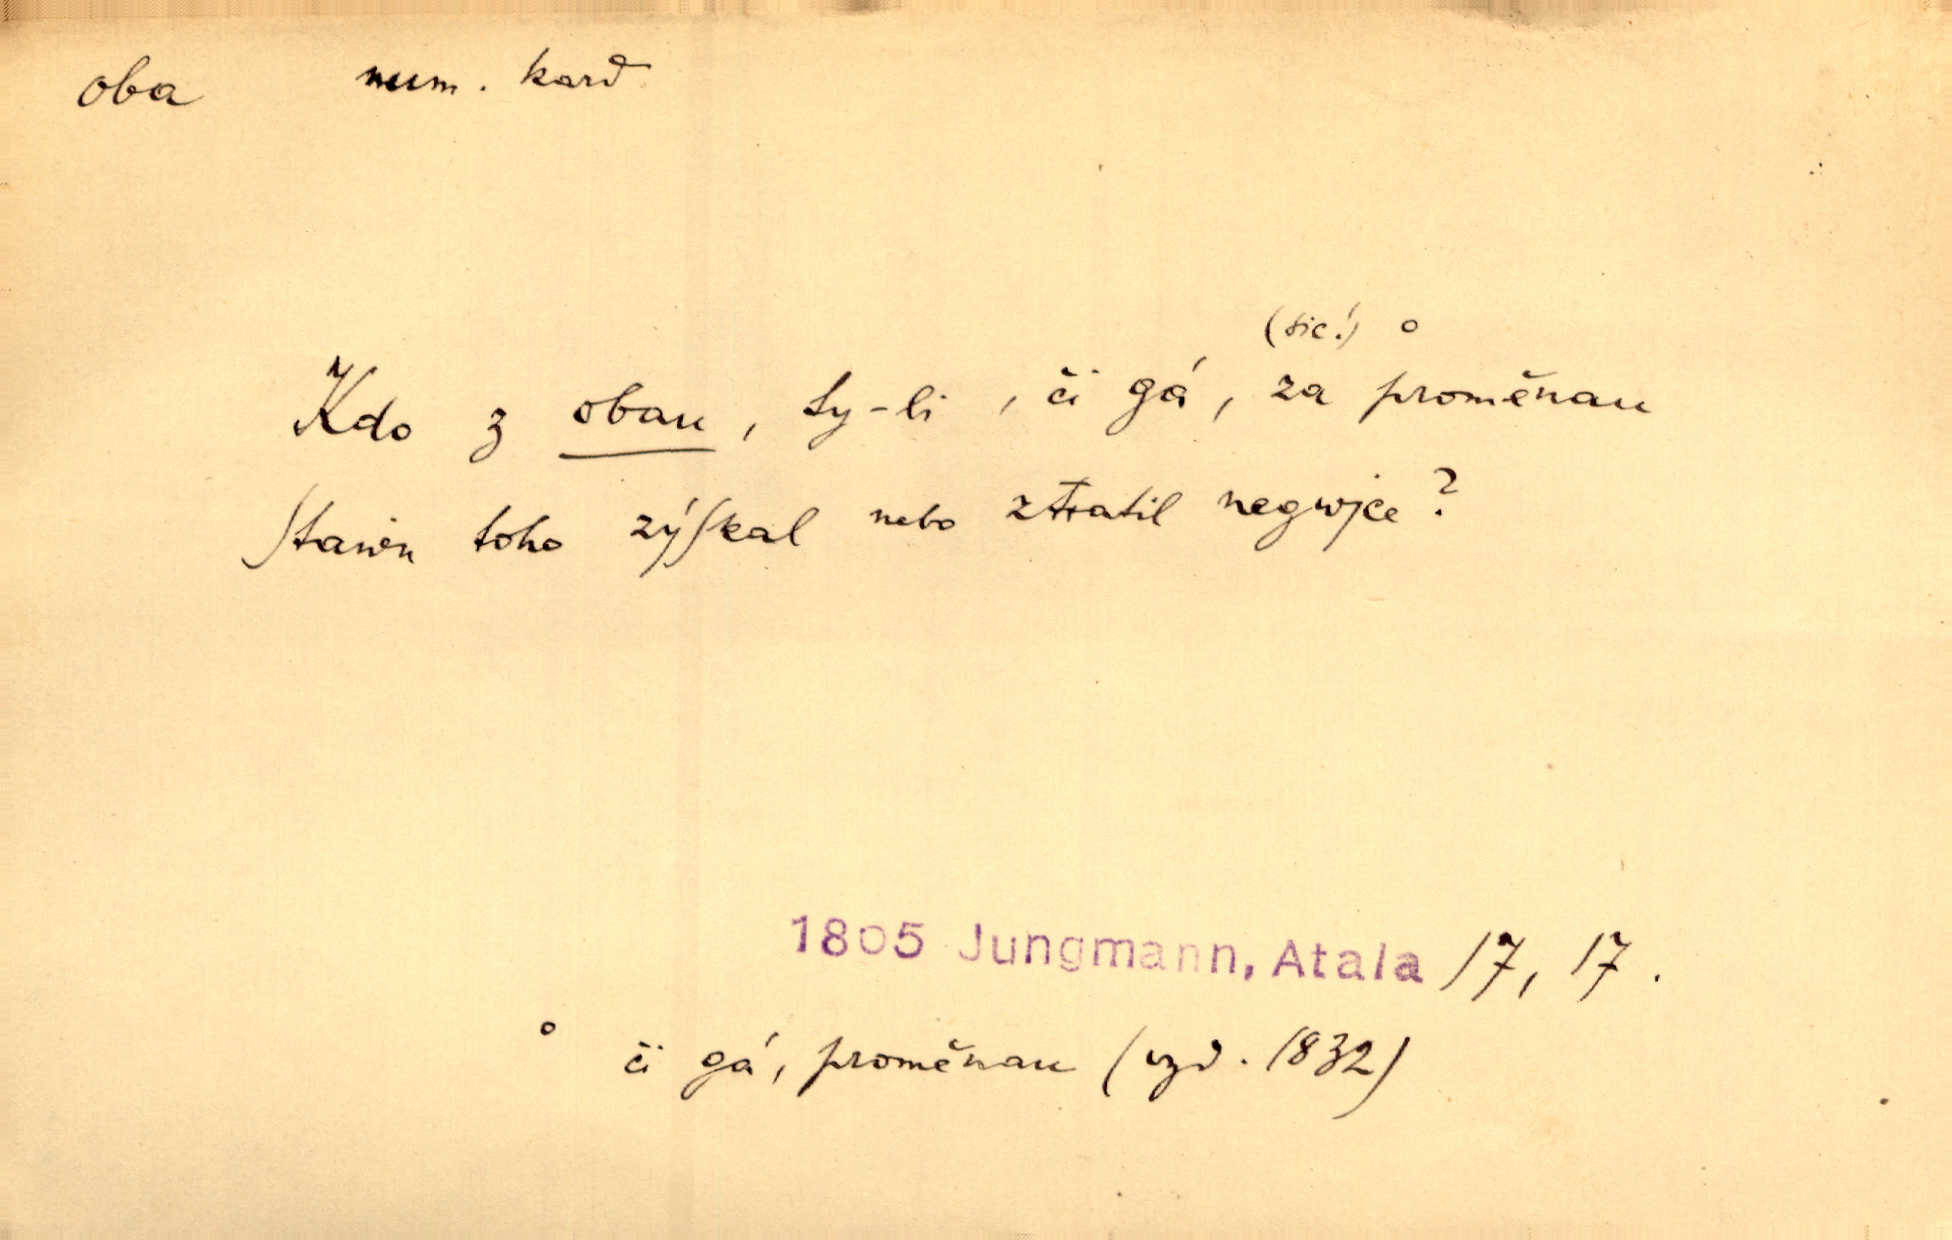 oba num. kard.
(sic!) °
Kdo z obau, ty-li, či gá, za proměnau
ſtawu toho zýſkal nebo ztratil negwjce?
1805 Jungmann, Atala 17, 17.
° či gá, proměnau (vyd. 1832)